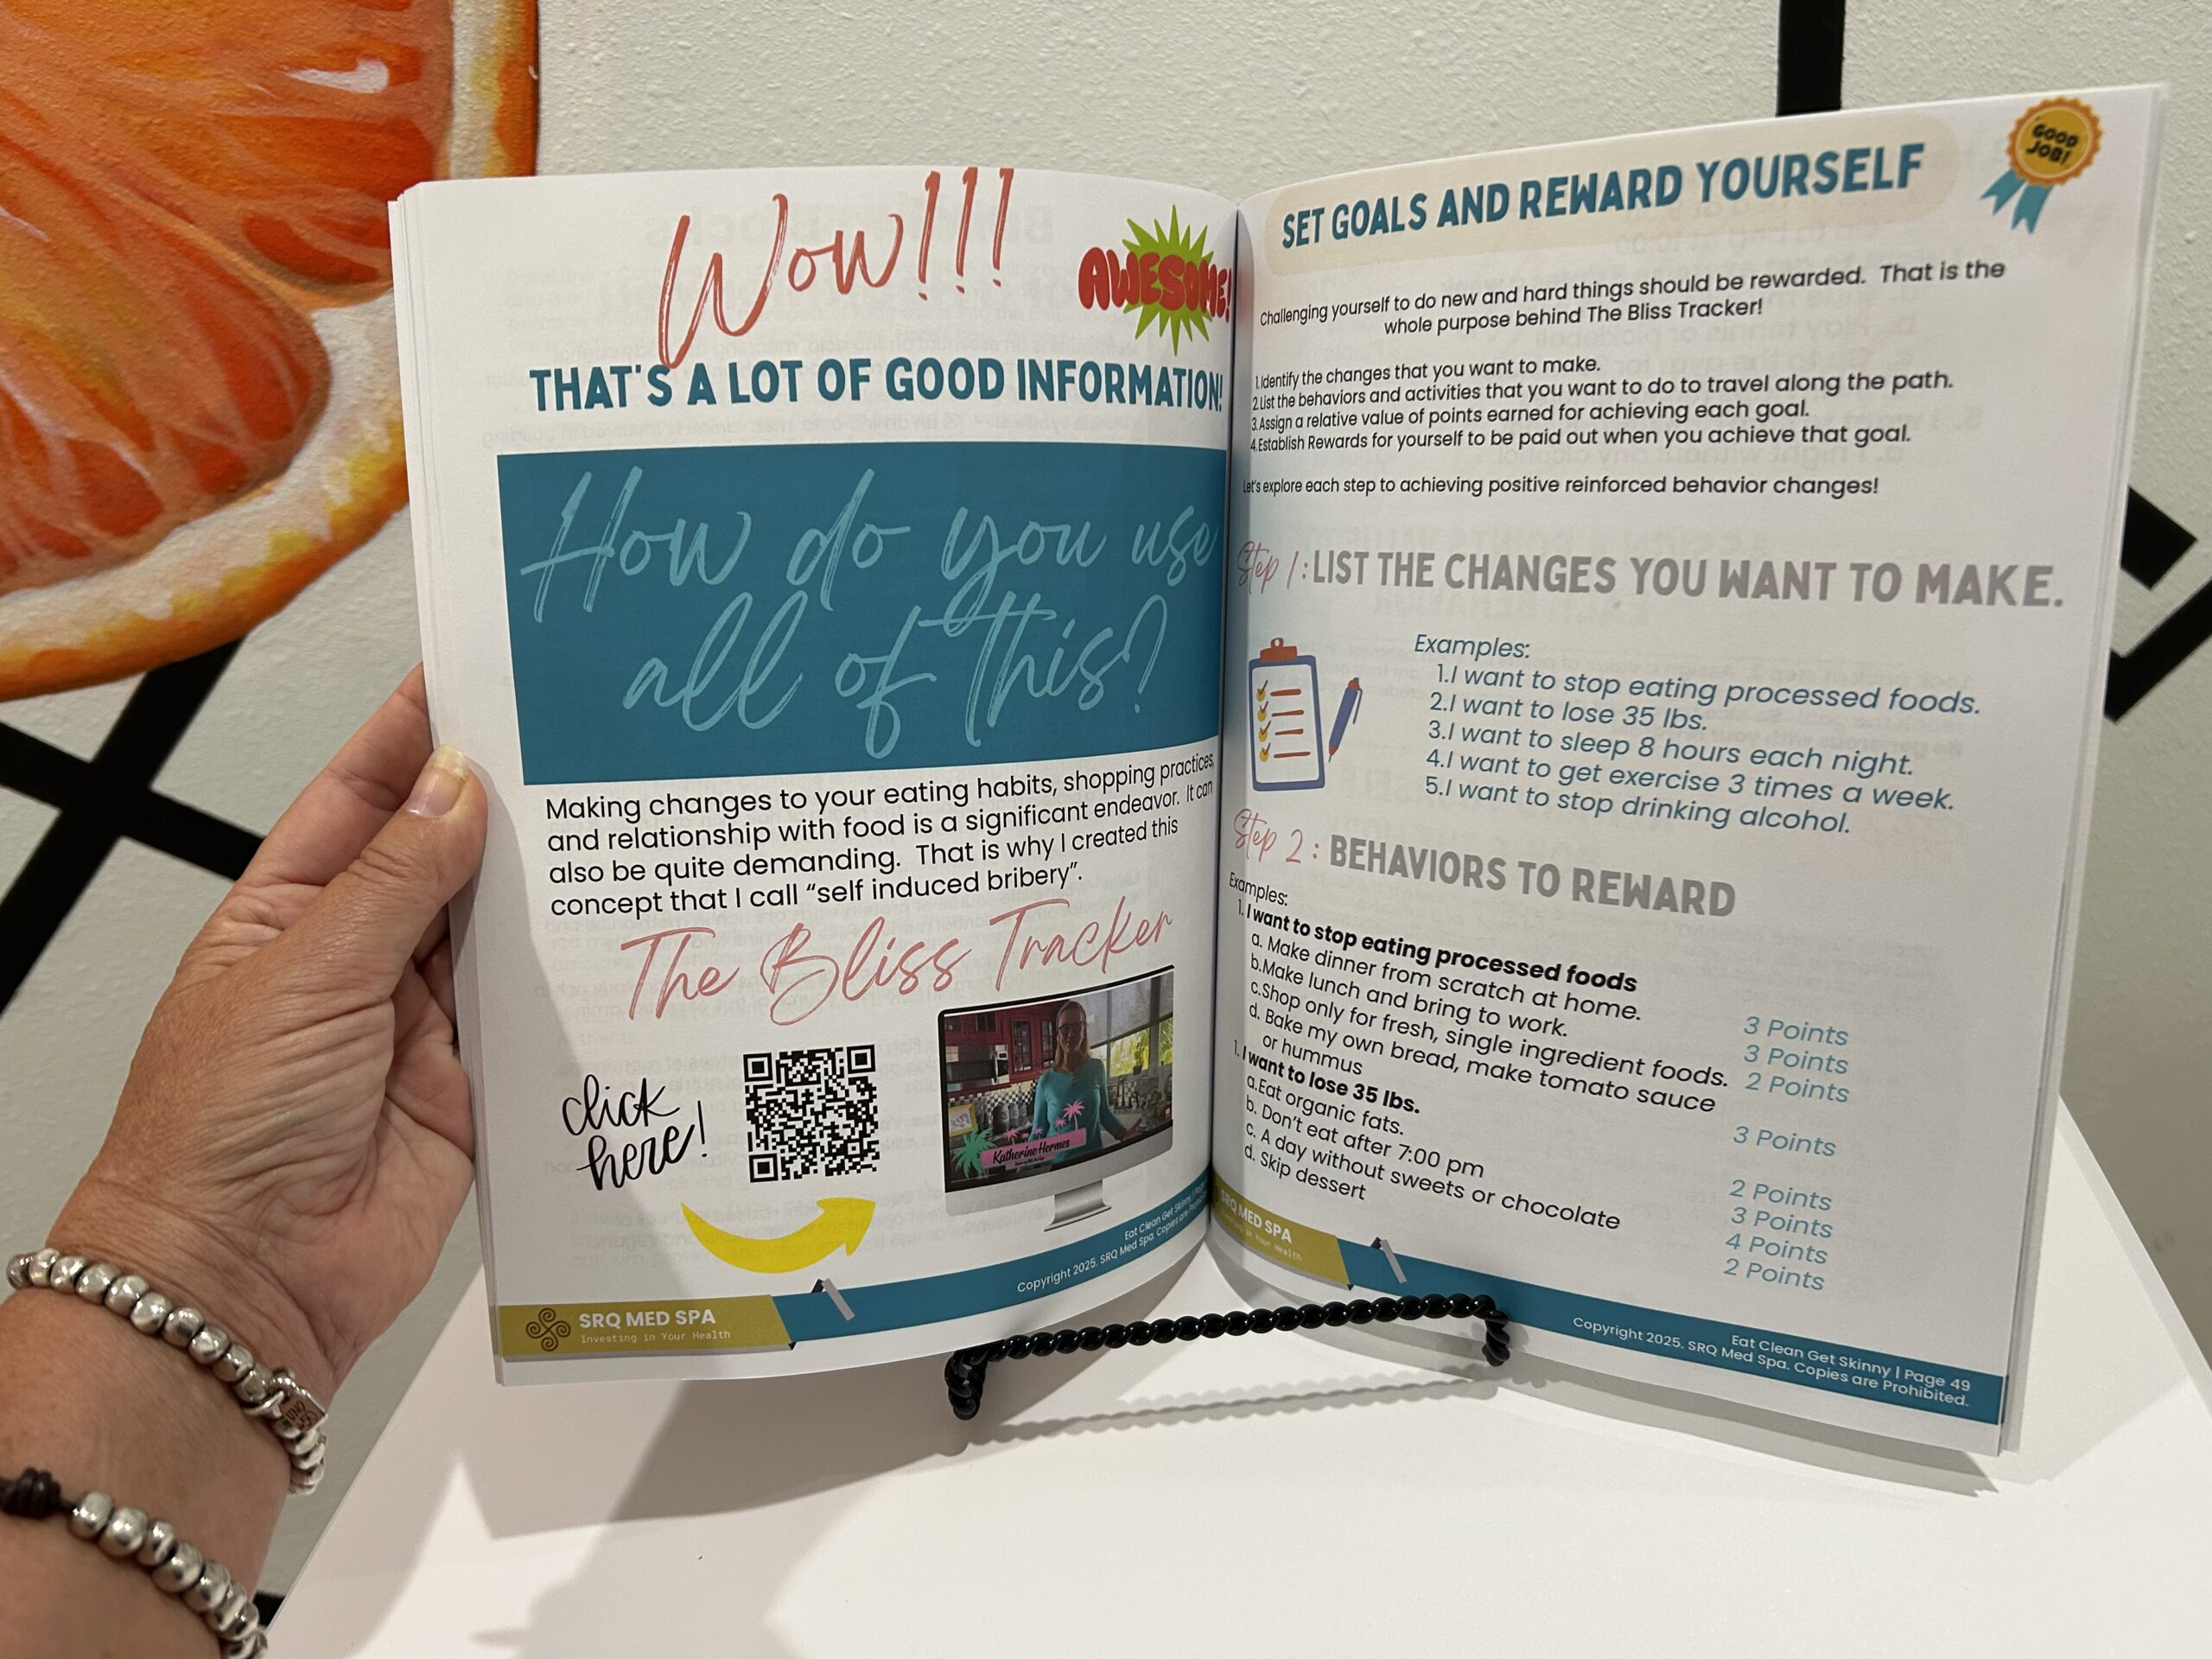 Wow!!!
AWESOME!
THAT'S A LOT OF GOOD INFORMATION!
How do you use
all of this?
Making changes to your eating habits, shopping practices,
and relationship with food is a significant endeavor. It can
also be quite demanding. That is why I created this
concept that I call “self induced bribery”.
The Bliss Tracker
click
here!
Katherine Hermes
SRQ MED SPA
Investing in Your Health
Eat Clean Get Skinny |
Copyright 2025. SRQ Med Spa. Copies are
GOOD
JOB!
SET GOALS AND REWARD YOURSELF
Challenging yourself to do new and hard things should be rewarded. That is the
whole purpose behind The Bliss Tracker!
1.Identify the changes that you want to make.
2.List the behaviors and activities that you want to do to travel along the path.
3.Assign a relative value of points earned for achieving each goal.
4.Establish Rewards for yourself to be paid out when you achieve that goal.
Let's explore each step to achieving positive reinforced behavior changes!
Step 1: LIST THE CHANGES YOU WANT TO MAKE.
Examples:
1.I want to stop eating processed foods.
2.I want to lose 35 lbs.
3.I want to sleep 8 hours each night.
4.I want to get exercise 3 times a week.
5.I want to stop drinking alcohol.
Step 2: BEHAVIORS TO REWARD
Examples:
1. I want to stop eating processed foods
a. Make dinner from scratch at home. 3 Points
b.Make lunch and bring to work. 3 Points
c.Shop only for fresh, single ingredient foods. 2 Points
d. Bake my own bread, make tomato sauce
or hummus 3 Points
1. I want to lose 35 lbs.
a.Eat organic fats. 2 Points
b. Don't eat after 7:00 pm 3 Points
c. A day without sweets or chocolate 4 Points
d. Skip dessert 2 Points
SRQ MED SPA
Investing in Your Health
Eat Clean Get Skinny | Page 49
Copyright 2025. SRQ Med Spa. Copies are Prohibited.